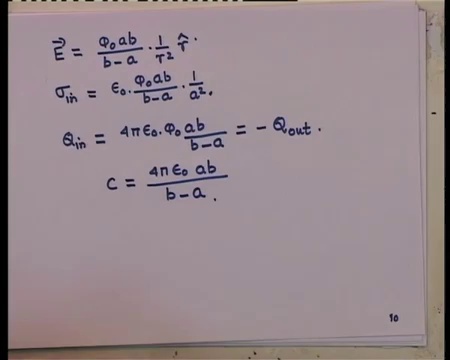 E⃗ = φ₀ab/(b-a) · 1/r² r̂.
σin = ε₀ · φ₀ab/(b-a) · 1/a².
Qin = 4πε₀·φ₀ ab/(b-a) = - Qout.
C = 4πε₀ ab/(b-a).
10